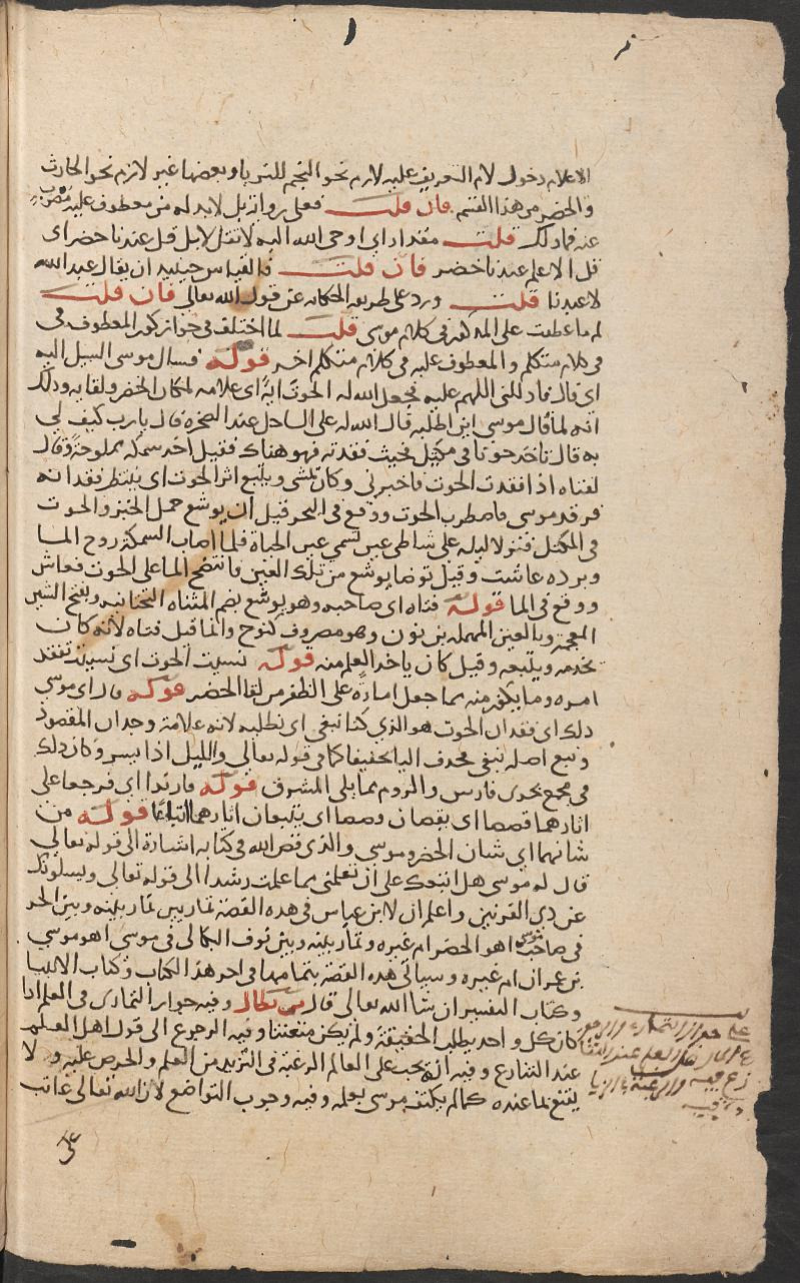 الاعلام دخول لام التعريف عليه لازم نحو النجم للثريا وبعضها غير لازم نحو الحارث
والخضر من هذا القسم فان قلت فعلى رواية بل لابد له من معطوف عليه مضروب
عنه فما ذلك قلت مقدار اي اوحى الله اليه لا تقل لا بل قل عبدنا خضر اي
قل الاعلم عبدنا خضر فان قلت فالقياس حينئذ ان يقال عبد الله
لا عبدنا قلت ورد على طريقة الحكاية عن قول الله تعالى فان قلت
لم ما عطف على المذكور في كلام موسى قلت لما اختلف في جواز كون المعطوف في
في كلام متكلم والمعطوف عليه في كلام متكلم اخر قوله فسال موسى السبيل اليه
اي قال فادللنى اللهم عليه فجعل الله له الحوت اية اي علامة لمكان الخضر ولقائه وذلك
انه لما قال موسى اين اطلبه قال الله له على الساحل عند الصخرة قال يا رب كيف لي
به قال تاخذ حوتا في مكتل فحيث فقدته فهو هناك فقيل اخذ سمكة مملوحة وقال
لفتاه اذا فقدت الحوت فاخبرني وكان يمشي ويتبع اثر الحوت اي ينتظر فقدانه
فرقد موسى فاضطرب الحوت ووقع في البحر قيل ان يوشع حمل الخبز والحوت
في المكتل فنزلا ليلة على شاطي عين تسمى عين الحياة فلما اصاب السمكة روح الما
وبرده عاشت وقيل توضا يوشع من تلك العين فانتضح الما على الحوت فعاش
ووقع في الما قوله فتاه اي صاحبه وهو يوشع بضم المثناه التحتانيه وبفتح الشين
المعجمة وبالعين المهمله بن نون وهو مصروف كنوح وانما قيل فتاه لانه كان
يخدمه ويتبعه وقيل كان ياخذ العلم منه قوله نسيت الحوت اي نسيت تفقد
امره وما يكون منه مما جعل امارة على الظفر من لقا الخضر قوله قال اي موسى
ذلك اي فقدان الحوت هو الذي كنا نبغي اي نطلبه لانه علامة وجدان المقصود
ونبغ اصله نبغي فحذف اليا تخفيفا كما في قوله تعالى والليل اذا يسر وكان ذلك
في مجمع بحرى فارس والروم مما يلي المشرق قوله فارتدا اي فرجعا على
اثارهما قصصا اي يقصان قصصا اي يتبعان اثارهما اتباعا قوله من
شانهما اي شان الخضر وموسى والذي قص الله في كتابه اشارة الى قوله تعالى
قال له موسى هل اتبعك على ان تعلمني مما علمت رشدا الى قوله تعالى ويسلونك
عن ذي القرنين واعلم ان لابن عباس في هذه القصة تماريين تمار بينه وبين الحر
في صاحب موسى اهو الخضر ام غيره وتمار بينه وبين نوف البكالى في موسى اهو موسى
بن عمران ام غيره وسياتي هذه القصة بتمامها في اخر هذا الكتاب وكتاب الانبيا
وكتاب التفسير ان شا الله تعالى قال بن بطال وفيه جواز التمارى في العلم اذا
كان كل واحد يطلب الحقيقة ولم يكن متعنتا وفيه الرجوع الى قول اهل العلم
عند التنازع وفيه انه يجب على العالم الرغبة في التزيد من العلم والحرص عليه ولا
يقنع بما عنده كما لم يكتف موسى بعلمه وفيه وجوب التواضع لان الله تعالى عاتب